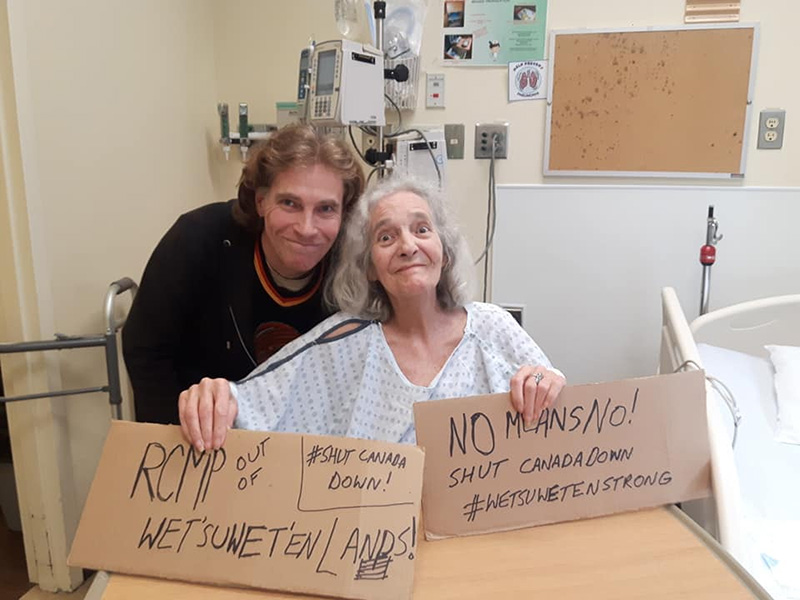 RCMP OUT
OF
#SHUT CANADA
DOWN!
WET'SUWET'EN LANDS!
NO MEANS NO!
SHUT CANADA DOWN
#WETSUWETENSTRONG